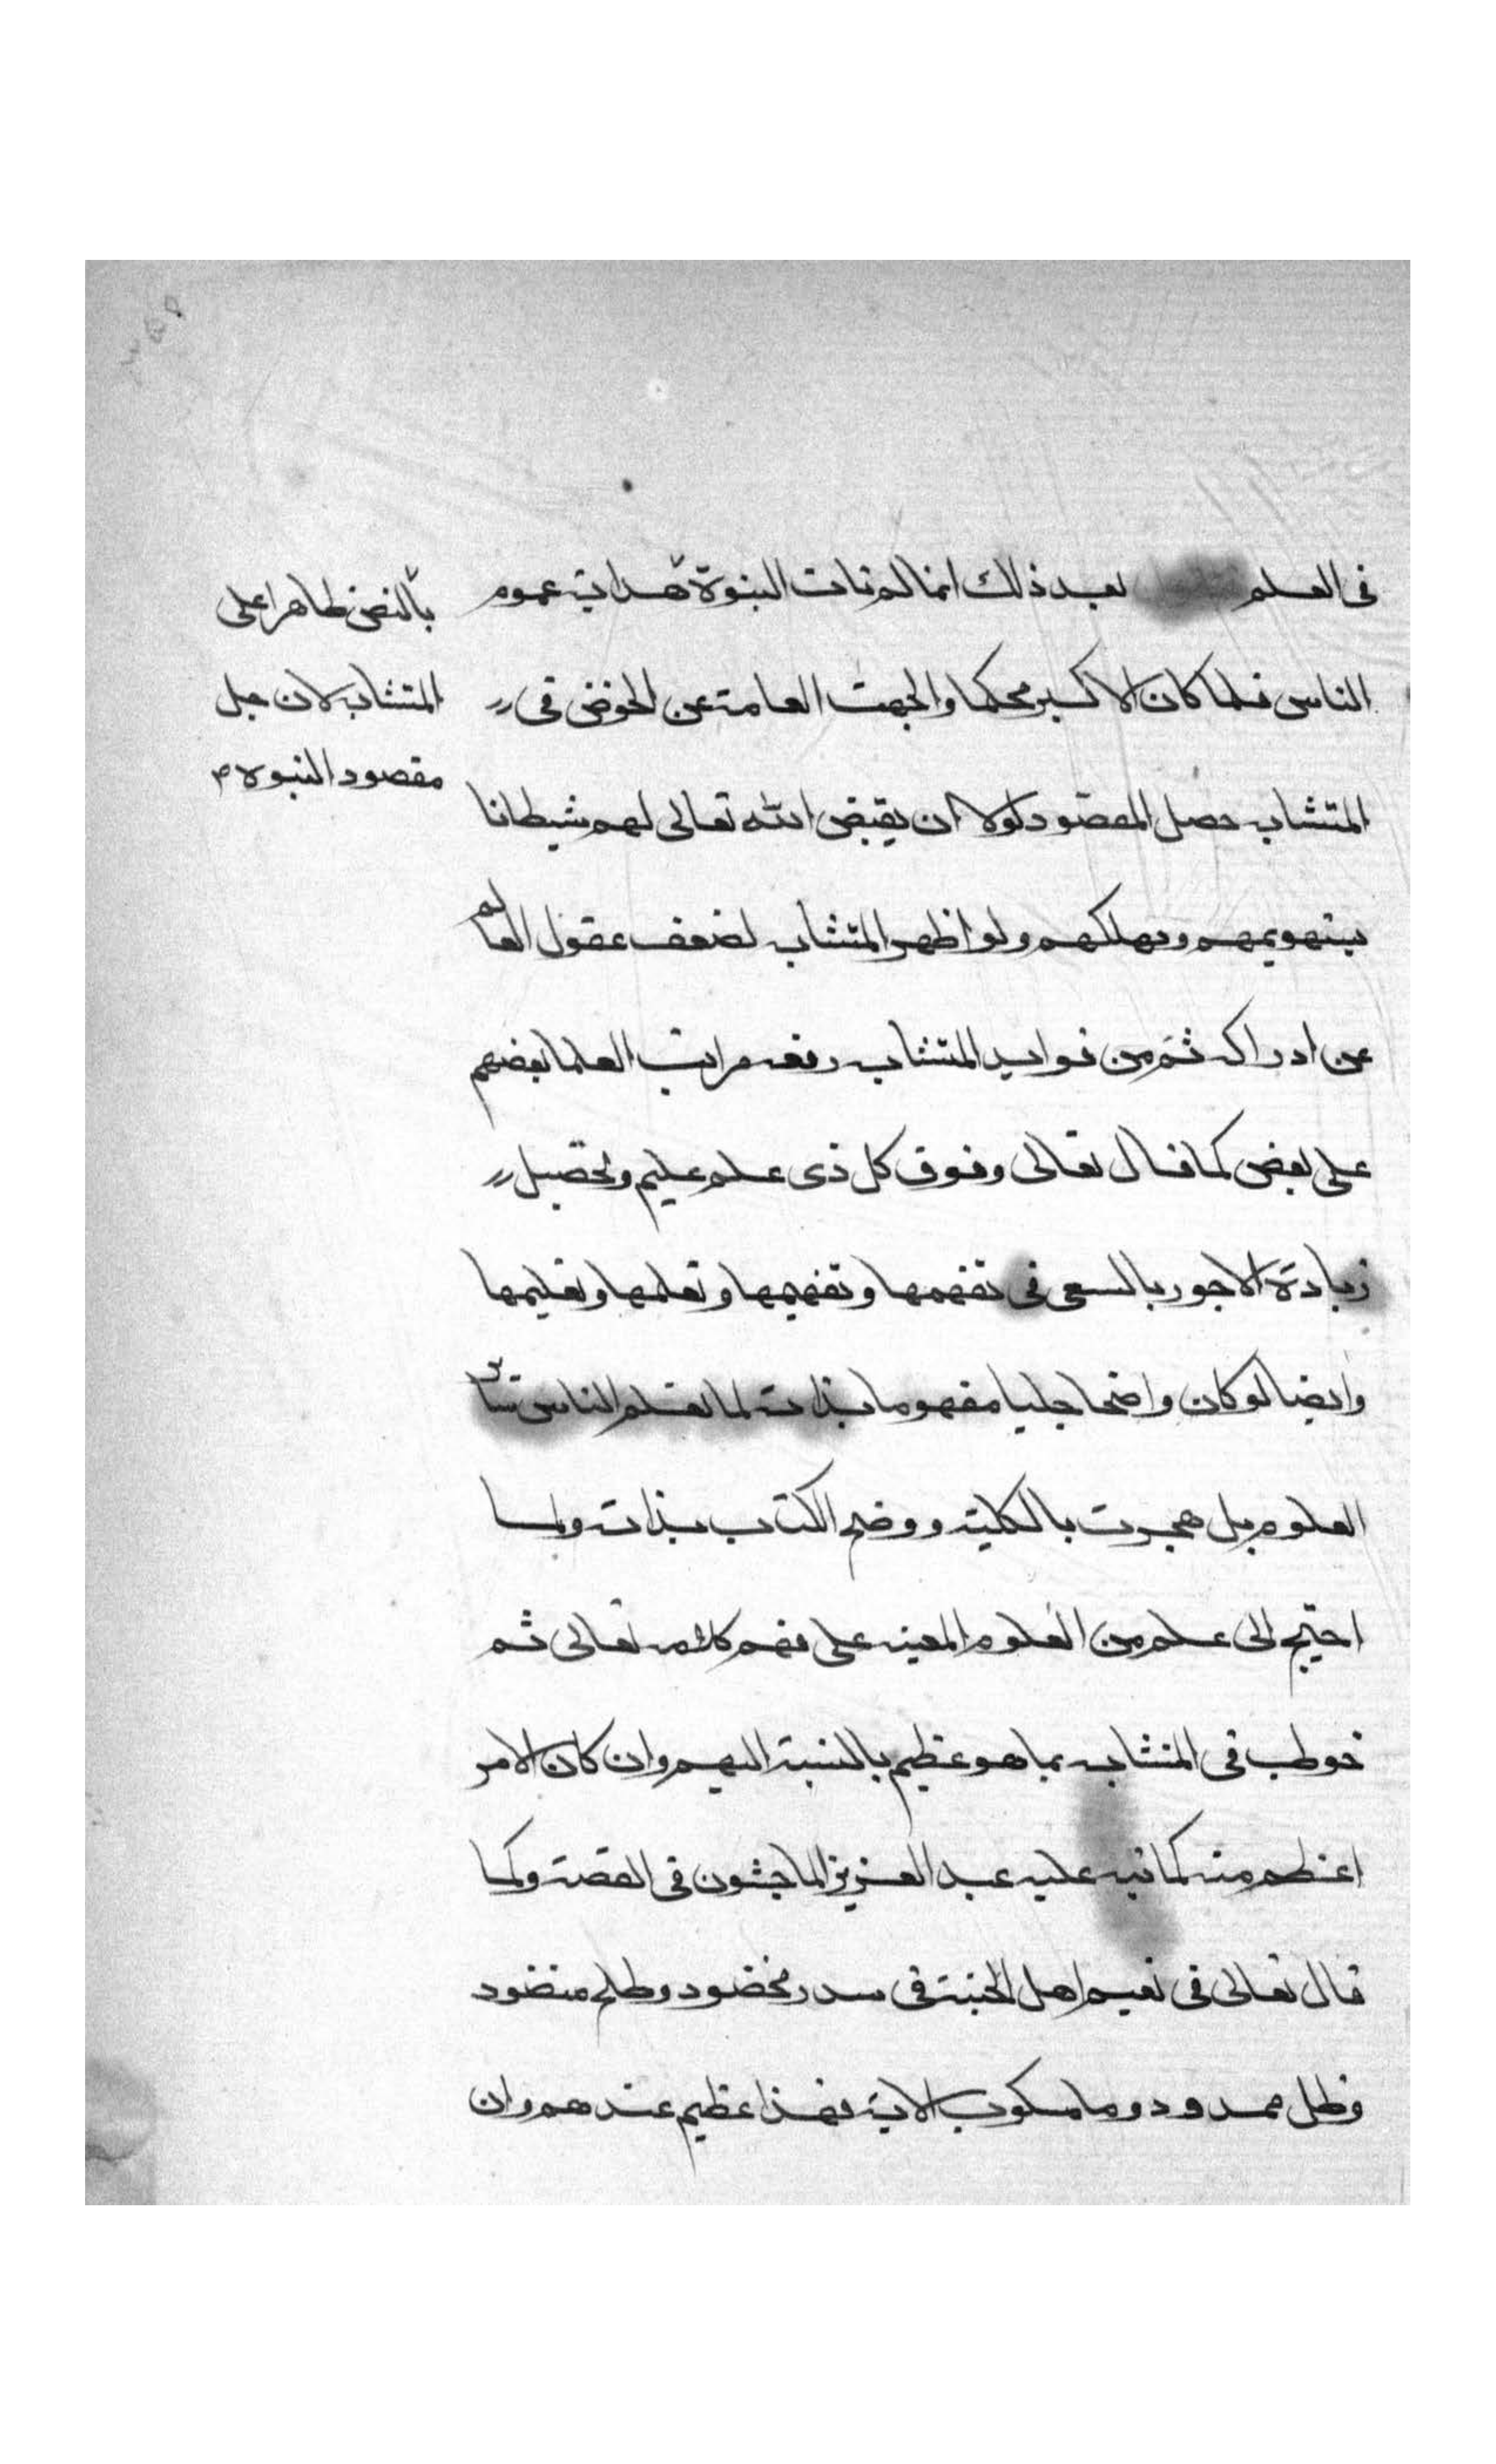 فى العلم بعد ذلك انما لم تات النبوة هداية عموم
الناس فلما كان الاكبر محكما والجمت العامة عن الخوض فى
المتشابه حصل المقصود لولا ان يقيض الله تعالى لهم شيطانا
يستهويهم ويهلكهم ولو اظهر المتشابه لضعف عقول العالم
عن ادراكه ثم من فوايد المتشابه رفعه مراتب العلما بعضهم
على بعض كما قال تعالى وفوق كل ذى علم عليم وتحصيل
زيادة الاجور بالسعى فى تفهمها وتفهيمها وتعلمها وتعليمها
وايضا لو كان واضحا جليا مفهوما بذاته لما تعلم الناس سائر
العلوم بل هجرت بالكلية ووضح الكتاب بذاته ولما
احتيج الى علم من العلوم المعينه على فهم كلامه تعالى ثم
خوطب فى المتشابه بما هو عظيم بالنسبة اليهم وان كان الامر
اعظم منه كما نبه عليه عبد العزيز الماجشون فى القصة وكما
قال تعالى فى نعيم اهل الجنة فى سدر مخضود وطلح منضود
وظل ممدود وما مسكوب الاية فهذا عظيم عندهم وان
بالنص ظاهرا على
المتشابه لان جل
مقصود النبوة م